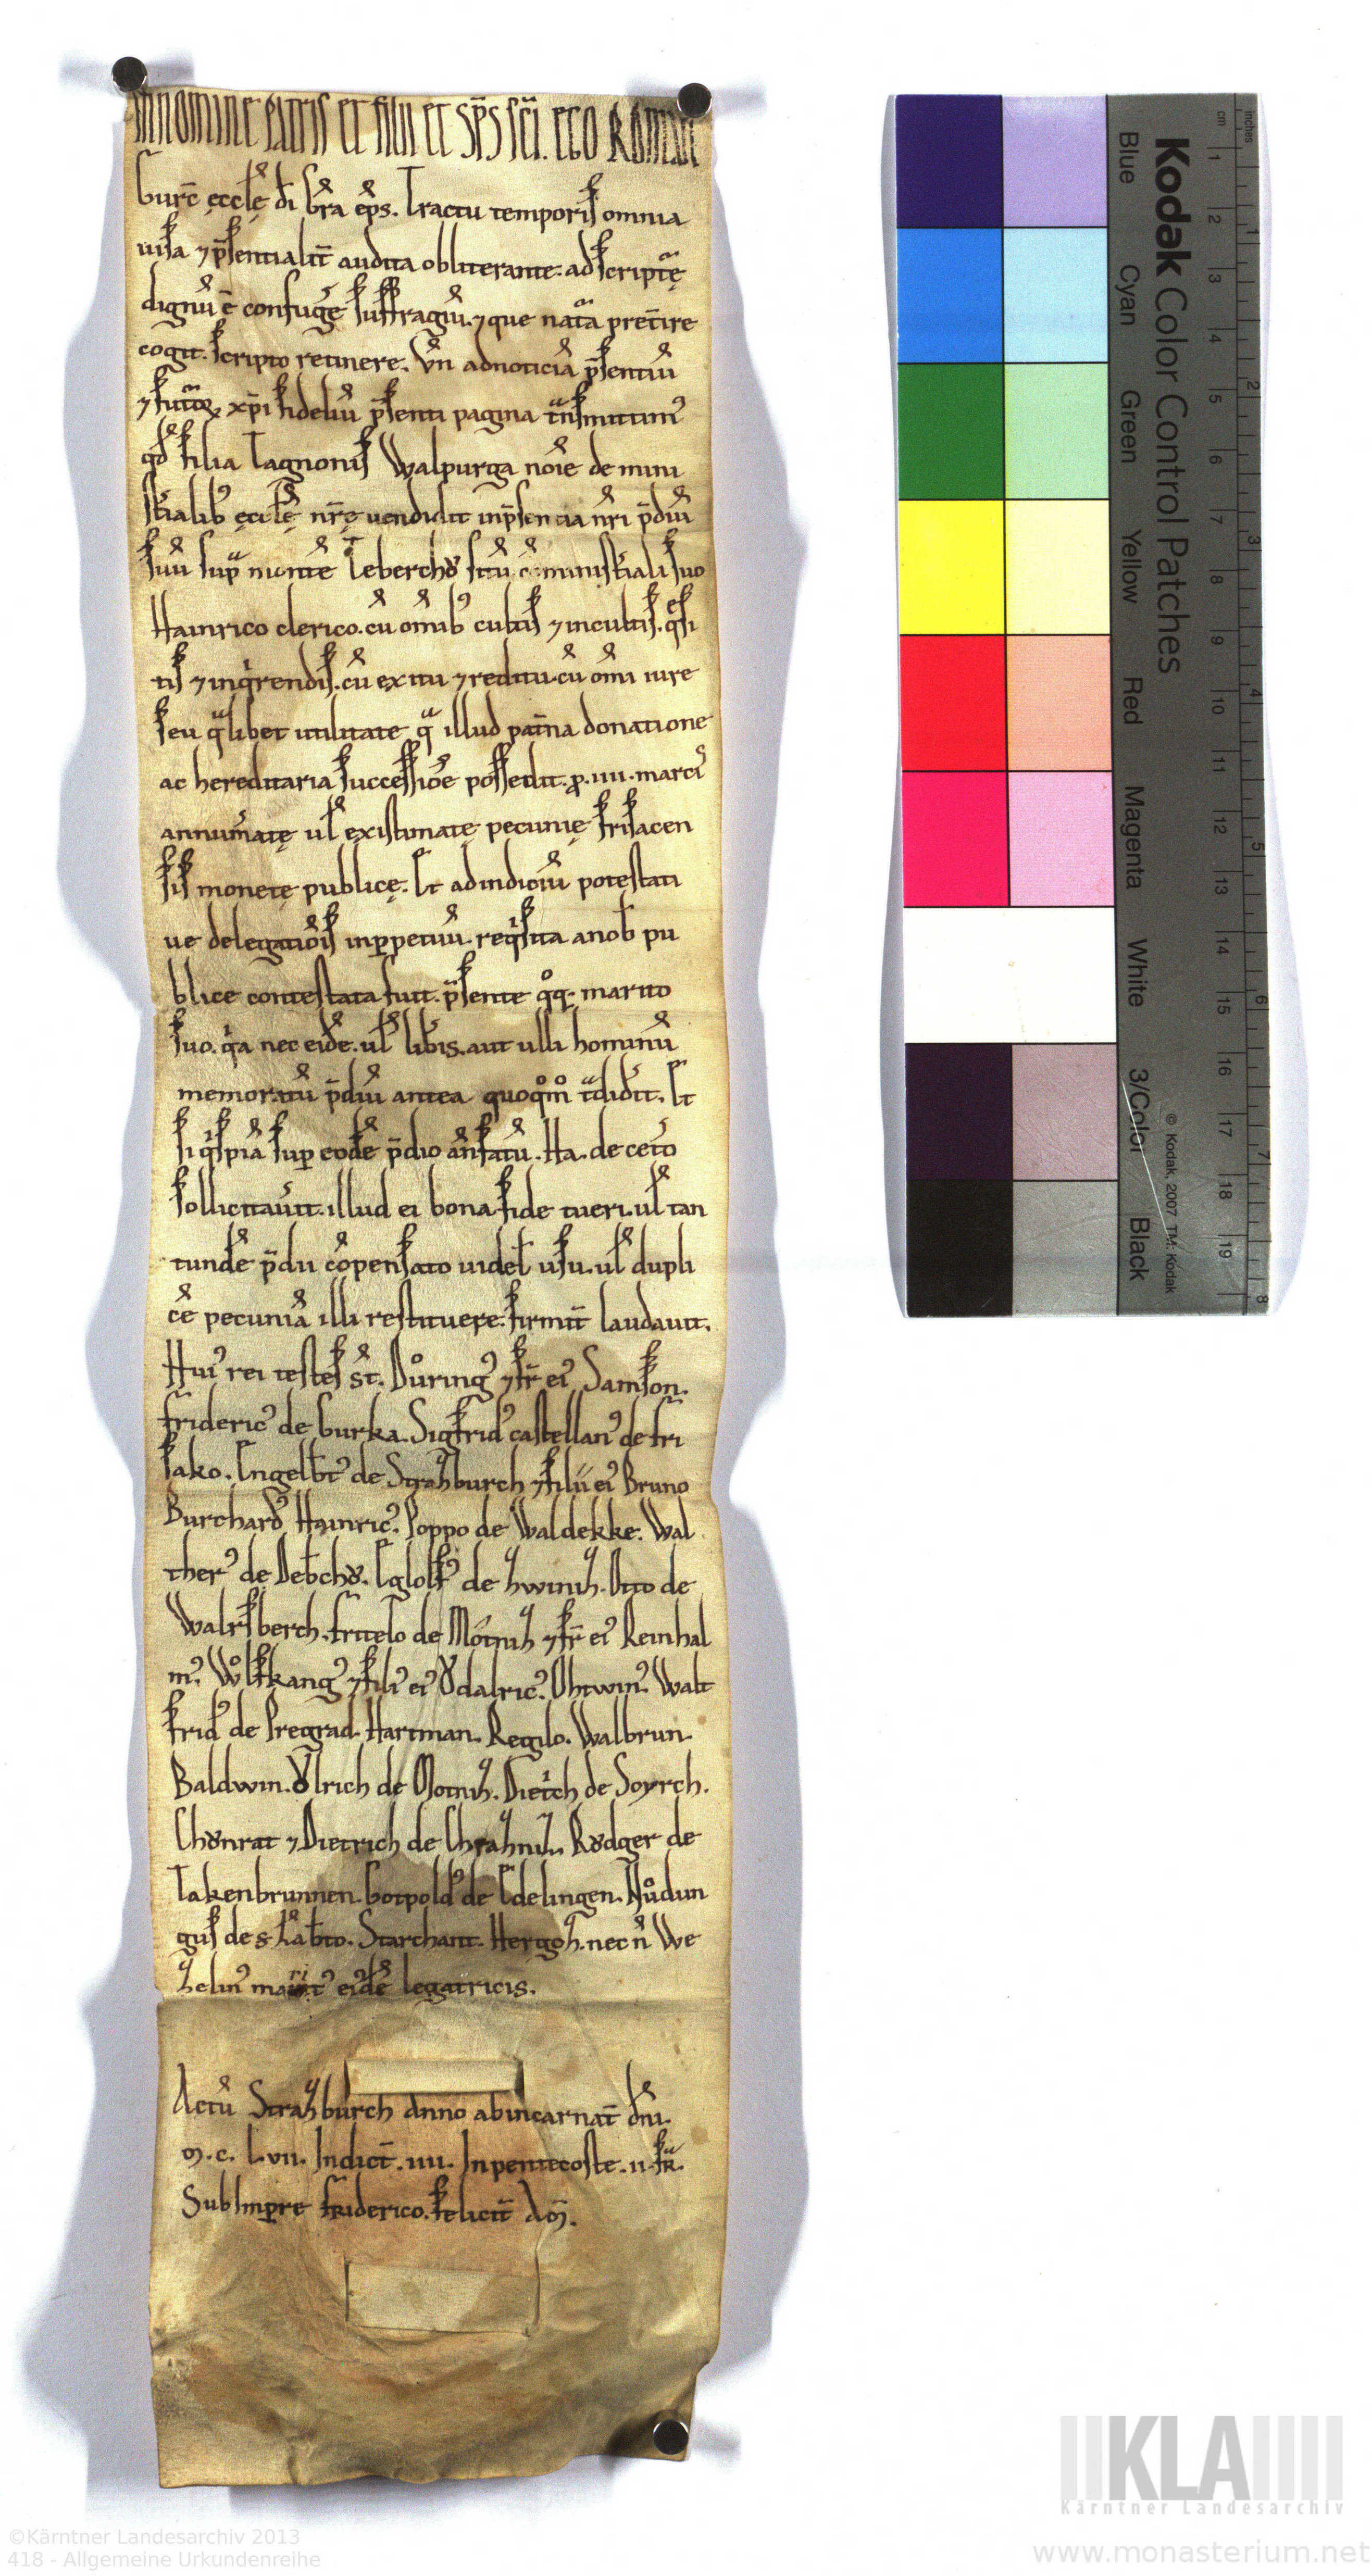 In nomine patris et filii et sp̄s sc̄i. ego Roman
Gurc̄ ęccłę dī gr̄a ep̄s. Tractu temporis omnia
uisa ⁊ p̄sentialit̄ audita obliterante. ad scriptę
dignū ē confugˀe suffragiū. ⁊ que nat̄a pret̄ire
cogit. scripto retinere. Vn̄ ad noticiā p̄sentiū
⁊ futōꝝ xp̄i fideliū p̄senti pagina tn̄smittimꝰ
qđ filia Tagnonis Walpurga noīe de mini
st̄ialibꝰ ęccłę nr̄ę uendidit in p̄sentia nr̄i p̄diū
suū sup̄ monte Leberchꝺ sitū. c̄ minist̄iali suo
Hainrico clerico. cū om̄ibꝰ cultis ⁊ incultis. q̄si
tis ⁊ inq̇rendis. cū exitu ⁊ reditu. cū om̄i iure
seu q̄libet utilitate q̄ illud pat̄na donatione
ac hereditaria successiōe possedit. ꝓ. iiii. marcˀ
annum̄atę uł existimatę pecunię frisacen
sis monetę publicę. Et ad indiciū potestati
ue delegatiōis in ꝑpetuū. req̇sita a nob̄ pu
blice contestata fuit. p̄sente q̊q. marito
suo. q̇a nec eidē. uł lib̄is. aut ulli hominū
memoratū p̄diū antea quoq̊m̊ t̄didˀit. Et
si q̇spiā suꝑ eodē p̄dio an̄fatū. Ha. de cet̄o
sollicitau̅it. illud ei bona fide tueri. uł tan
tundē p̄dii cōpensato uidel̄ usu. uł dupli
cē pecuniā illi restituere. firmit̄ laudauit.
Huiꝰ rei testes st̄. Důringꝰ ⁊ fr̄ eiꝰ Samson.
fridericꝰ de Gurka. Sigfridꝰ castellanꝰ de fri
sako. Engelb̄tꝰ de Strazburch ⁊ filii eiꝰ Bruno
Burchardꝰ Hainricꝰ. Poppo de Waldekke. Wal
therꝰ de Deb̄chꝺ. Eglolfꝰ de zwiniz. Otto de
Walrsberch. fritelo de Mótniz ⁊ fr̄ eiꝰ Reinhal
mꝰ. Wůlfkangꝰ ⁊ filiꝰ eiꝰ Ꝺdalricꝰ. Ohtwinꝰ. Walt
fridꝰ de Pregrad. Hartman. Regilo. Walbrun.
Baldwin. Ꝺlrich de Motniz. Diet̄ich de Soyrch.
Chꝺnrat ⁊ Dietrich de Chrazniz. Rꝺdger de
Takenbrunnen. Gotpoldꝰ de Edelingen. Nůdun
gus de s. Lab̄to. Starchant. Hertgoz. nec n̄ We
zelinꝰ maritꝰ eiꝰdē legatricis.
Actū Strazburch anno ab incarnat̄ dn̄i.
M. c. L. vii. Indict̄. iiii. In pentecoste. ii. fr̄.
Sub Impr̄e friderico. felicit̄ Am̄.
Kodak Color Control Patches
Blue
Cyan
Green
Yellow
Red
Magenta
White
3/Color
Black
© Kodak, 2007 TM: Kodak
cm 1 2 3 4 5 6 7 8 9 10 11 12 13 14 15 16 17 18 19
inches 1 2 3 4 5 6 7 8
KLA
Kärntner Landesarchiv
©Kärntner Landesarchiv 2013
418 - Allgemeine Urkundenreihe
www.monasterium.net